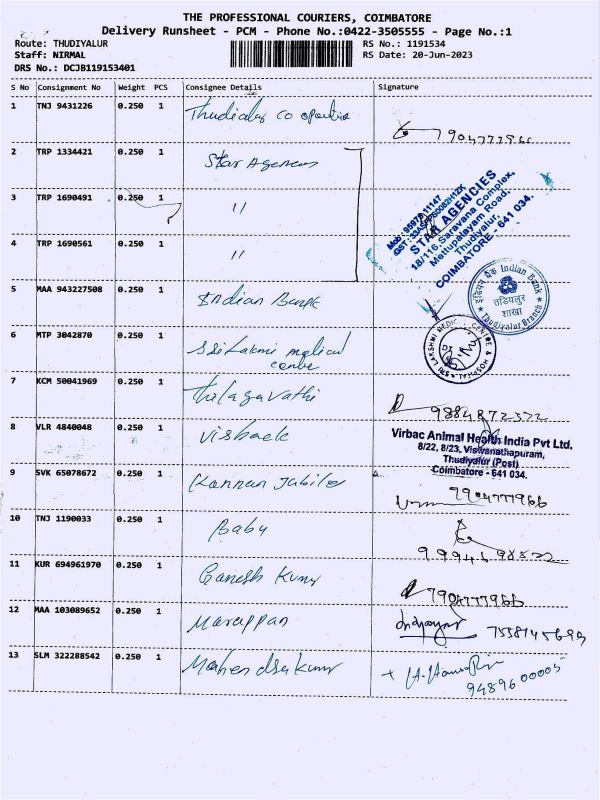 THE PROFESSIONAL COURIERS, COIMBATORE
Delivery Runsheet - PCM - Phone No.:0422-3505555 - Page No.:1
Route: THUDIYALUR
RS No.: 1191534
Staff: NIRMAL
RS Date: 20-Jun-2023
DRS No.: DCJB119153401
S No Consignment No Weight PCS Consignee Details Signature
1 TNJ 9431226 0.250 1 Thudialur co
7904777966
2 TRP 1334421 0.250 1 Star Agencies
3 TRP 1690491 0.250 1 "
4 TRP 1690561 0.250 1 "
STAR AGENCIES
18/116, Saravana Complex,
Mettupalayam Road,
Thudiyalur,
COIMBATORE - 641 034.
5 MAA 943227508 0.250 1 Indian Bank
इंडियन बैंक Indian Bank
तुडियलुर
शाखा
Thudiyalur Branch
6 MTP 3042870 0.250 1 Sri Lakmi medical
centre
SRI LAKSHMI MEDICAL CENTRE & HOSPITAL
7 KCM 50041969 0.250 1 Thilagavathi
8 VLR 4840048 0.250 1 Virback
Virbac Animal Health India Pvt Ltd.
8/22, 8/23, Viswanathapuram,
Thudiyalur (Post)
Coimbatore - 641 034.
9 SVK 65078672 0.250 1 Kannan
7904777966
10 TNJ 1190033 0.250 1 Babu
11 KUR 694961970 0.250 1 Ganesh Kumar
7904777966
12 MAA 103089652 0.250 1 Marappan
13 SLM 322288542 0.250 1 Mahendra kumar
9489600005